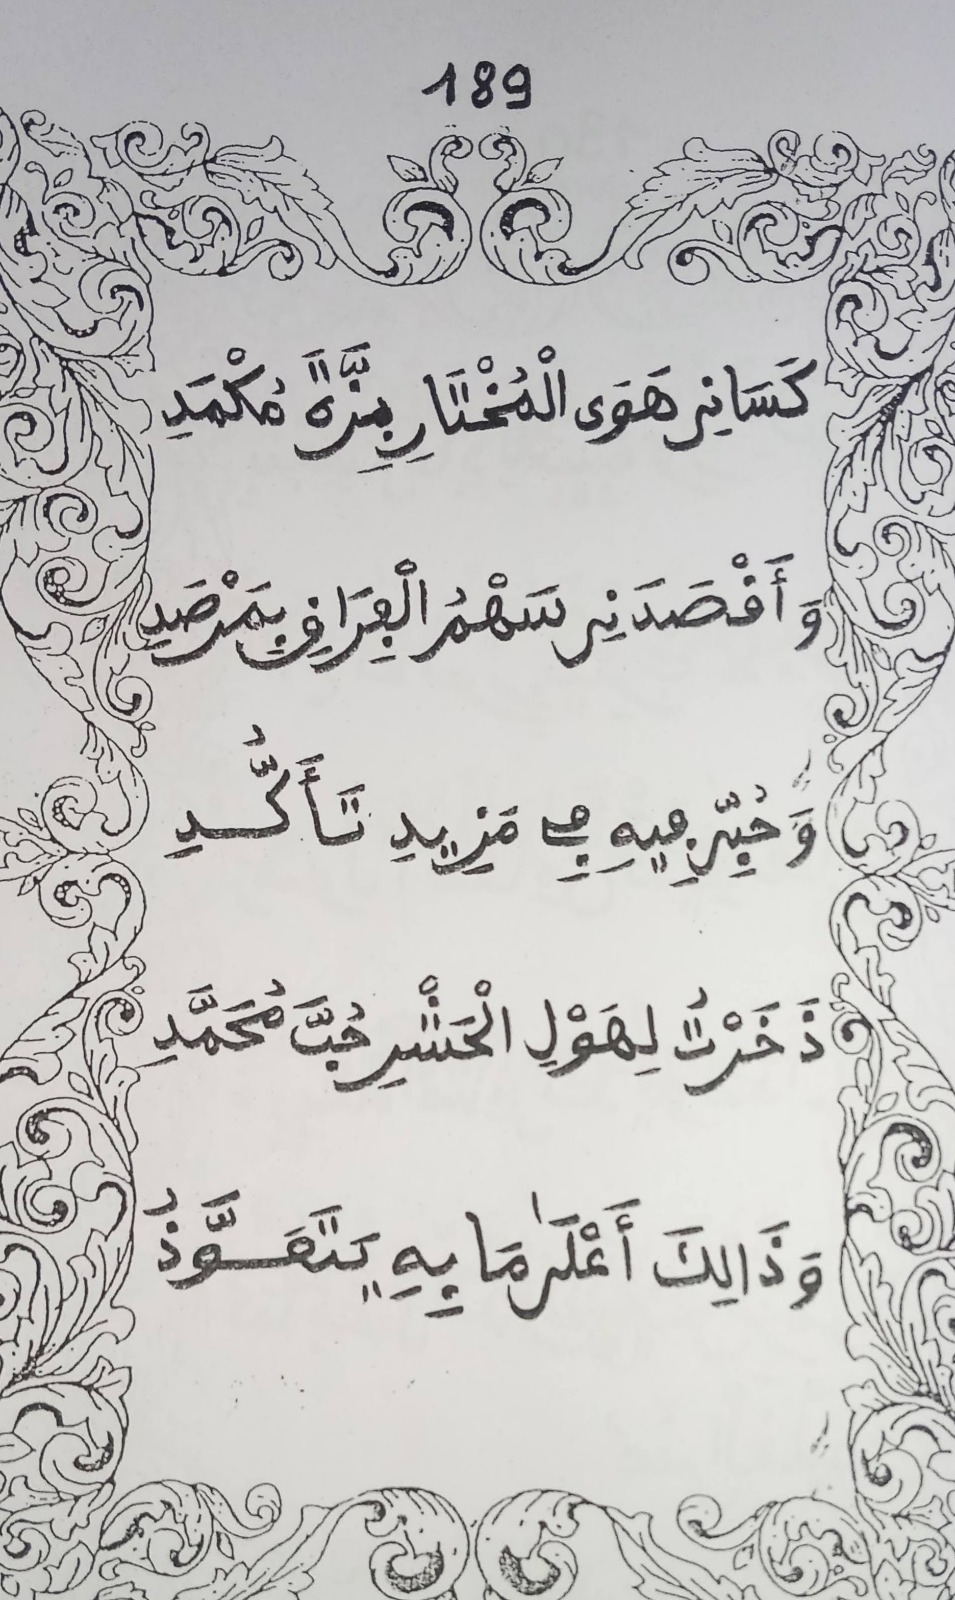 189
كَسَانِي هَوَى الْمُخْتَارِ بِزَّةَ مُكْمَدِ
وَأَقْصَدَنِي سَهْمُ الْفِرَاقِ بِمَرْصَدِ
وَحُبِّي فِيهِ فِي مَزِيدِ تَأَكُّدِ
ذَخَرْتُ لِهَوْلِ الْحَشْرِ حُبَّ مُحَمَّدِ
وَذَالِكَ أَعْلَى مَا بِهِ يَتَعَوَّذُ